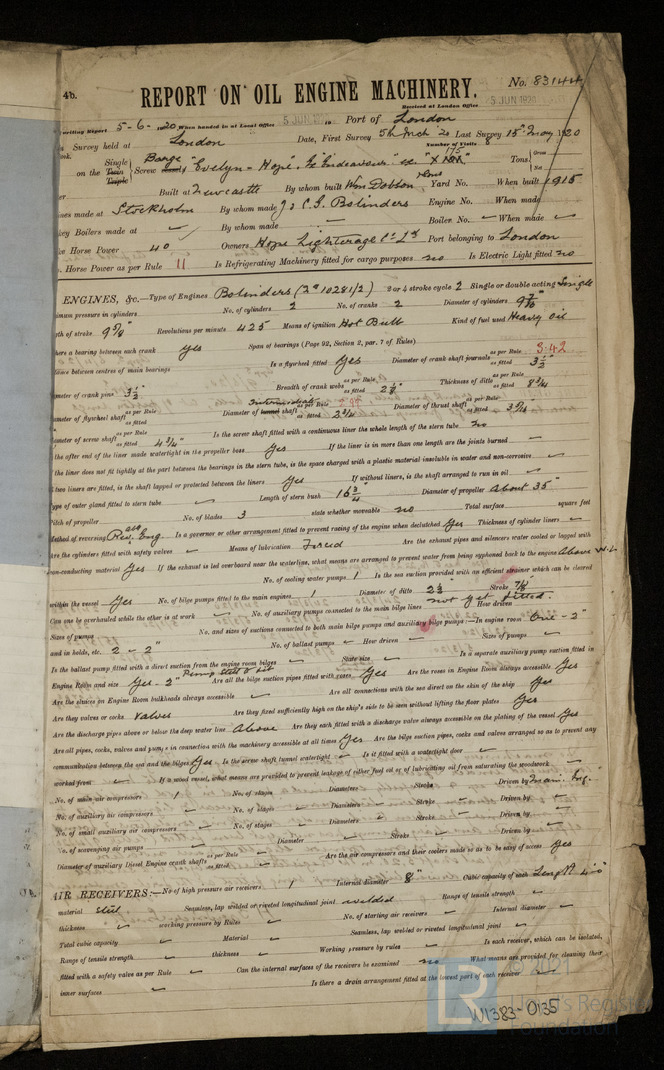 4b.
REPORT ON OIL ENGINE MACHINERY. No. 83144
Received at London Office 5 JUN 1920
writing Report 5-6-1920 When handed in at Local Office 5 JUN 1920 Port of London
Survey held at London Date, First Survey 5th Mch '20 Last Survey 15th May 1920
Number of Visits
on the Single Twin Triple Screw Barge "Evelyn-Hope", Ex "Endeavour" ex Tons Gross Net
Built at Newcastle By whom built Wm Dobson Yard No. When built 1915
made at Stockholm By whom made J & C.G. Bolinders Engine No. When made
Boilers made at By whom made Boiler No. When made
Horse Power 40 Owners Hope Lighterage Co Ld Port belonging to London
Horse Power as per Rule 11 Is Refrigerating Machinery fitted for cargo purposes no Is Electric Light fitted no
ENGINES, &c.—Type of Engines Bolinders 2 or 4 stroke cycle 2 Single or double acting Single
pressure in cylinders No. of cylinders 2 No. of cranks 2 Diameter of cylinders
of stroke Revolutions per minute 425 Means of ignition Hot Bulb Kind of fuel used Heavy oil
there a bearing between each crank Yes Span of bearings (Page 92, Section 2, par. 7 of Rules)
between centres of main bearings Is a flywheel fitted Yes Diameter of crank shaft journals as per Rule 3.42 as fitted 3½"
of crank pins 3½" Breadth of crank webs as per Rule as fitted Thickness of ditto as per Rule as fitted
of flywheel shaft as per Rule as fitted Diameter of Intermediate shaft as per Rule as fitted 2¾ Diameter of thrust shaft as per Rule as fitted
of screw shaft as per Rule as fitted 4¾" Is the screw shaft fitted with a continuous liner the whole length of the stern tube no
the after end of the liner made watertight in the propeller boss Yes If the liner is in more than one length are the joints burned
the liner does not fit tightly at the part between the bearings in the stern tube, is the space charged with a plastic material insoluble in water and non-corrosive
two liners are fitted, is the shaft lapped or protected between the liners Yes If without liners, is the shaft arranged to run in oil
of outer gland fitted to stern tube Length of stern bush Diameter of propeller About 35"
Pitch of propeller No. of blades 3 state whether moveable no Total surface square feet
Method of reversing Rev. Eng. Is a governor or other arrangement fitted to prevent racing of the engine when declutched Yes Thickness of cylinder liners
Are the cylinders fitted with safety valves Means of lubrication Forced Are the exhaust pipes and silencers water cooled or lagged with
non-conducting material Yes If the exhaust is led overboard near the waterline, what means are arranged to prevent water from being syphoned back to the engine Above W.L
No. of cooling water pumps 1 Is the sea suction provided with an efficient strainer which can be cleared
within the vessel Yes No. of bilge pumps fitted to the main engines 1 Diameter of ditto Stroke
Can one be overhauled while the other is at work No. of auxiliary pumps connected to the main bilge lines not yet fitted. How driven
Sizes of pumps No. and sizes of suctions connected to both main bilge pumps and auxiliary bilge pumps:—In engine room One - 2"
and in holds, etc. 2 - 2" No. of ballast pumps How driven Sizes of pumps
Is the ballast pump fitted with a direct suction from the engine room bilges State size Is a separate auxiliary pump suction fitted in
Engine Room and size Yes - 2" Are all the bilge suction pipes fitted with roses Yes Are the roses in Engine Room always accessible Yes
Are the sluices on Engine Room bulkheads always accessible Are all connections with the sea direct on the skin of the ship Yes
Are they valves or cocks Valves Are they fixed sufficiently high on the ship's side to be seen without lifting the floor plates Yes
Are the discharge pipes above or below the deep water line Above Are they each fitted with a discharge valve always accessible on the plating of the vessel Yes
Are all pipes, cocks, valves and pumps in connection with the machinery accessible at all times Yes Are the bilge suction pipes, cocks and valves arranged so as to prevent any
communication between the sea and the bilges Yes Is the screw shaft tunnel watertight Is it fitted with a watertight door
worked from If a wood vessel, what means are provided to prevent leakage of either fuel oil or of lubricating oil from saturating the woodwork
No. of main air compressors 1 No. of stages Diameters Stroke Driven by Main Eng.
No. of auxiliary air compressors No. of stages Diameters Stroke Driven by
No. of small auxiliary air compressors No. of stages Diameters Stroke Driven by
No. of scavenging air pumps Diameter Stroke Driven by
Diameter of auxiliary Diesel Engine crank shafts as per Rule as fitted Are the air compressors and their coolers made so as to be easy of access Yes
AIR RECEIVERS:—No. of high pressure air receivers 1 Internal diameter 8" Cubic capacity of each
material Steel Seamless, lap welded or riveted longitudinal joint welded Range of tensile strength
thickness working pressure by Rules No. of starting air receivers Internal diameter
Total cubic capacity Material Seamless, lap welded or riveted longitudinal joint
Range of tensile strength thickness Working pressure by rules Is each receiver, which can be isolated,
fitted with a safety valve as per Rule Can the internal surfaces of the receivers be examined no What means are provided for cleaning their
inner surfaces Is there a drain arrangement fitted at the lowest part of each receiver
W1383-0135